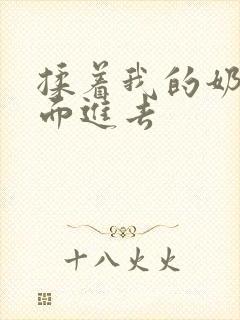 揉着我的奶
而進去
十八火火